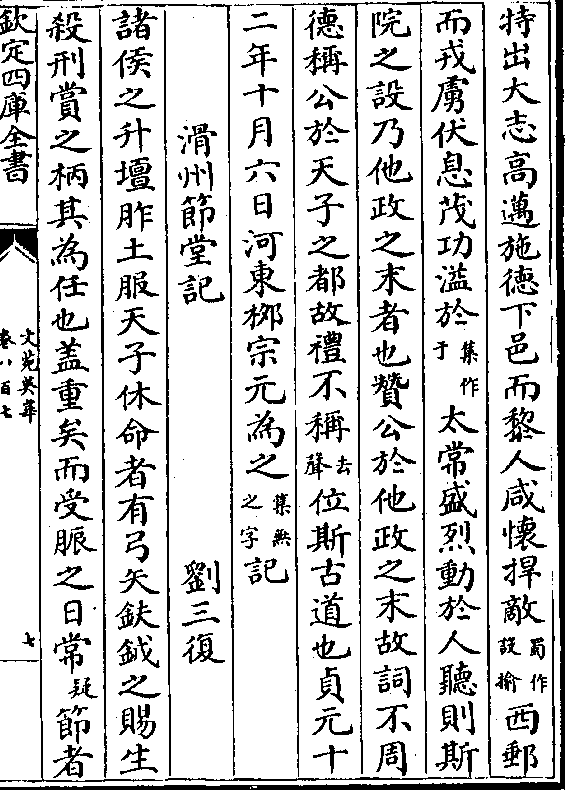 特出大志高邁施德下邑而黎人咸懷捍敵蜀作設揄西郵
而戎虜伏息茂功溢於集作于太常盛烈動於人聽則斯
院之設乃他政之末者也贊公於他政之末故詞不周
德稱公於天子之都故禮不稱去聲位斯古道也貞元十
二年十月六日河東栁宗元為之集無之字記
滑州節堂記 劉三復
諸侯之升壇胙土服天子休命者有弓矢鈇鉞之賜生
殺刑賞之柄其為任也盖重矣而受脤之日常疑節者
欽定四庫全書
文苑英華
卷八百七
七